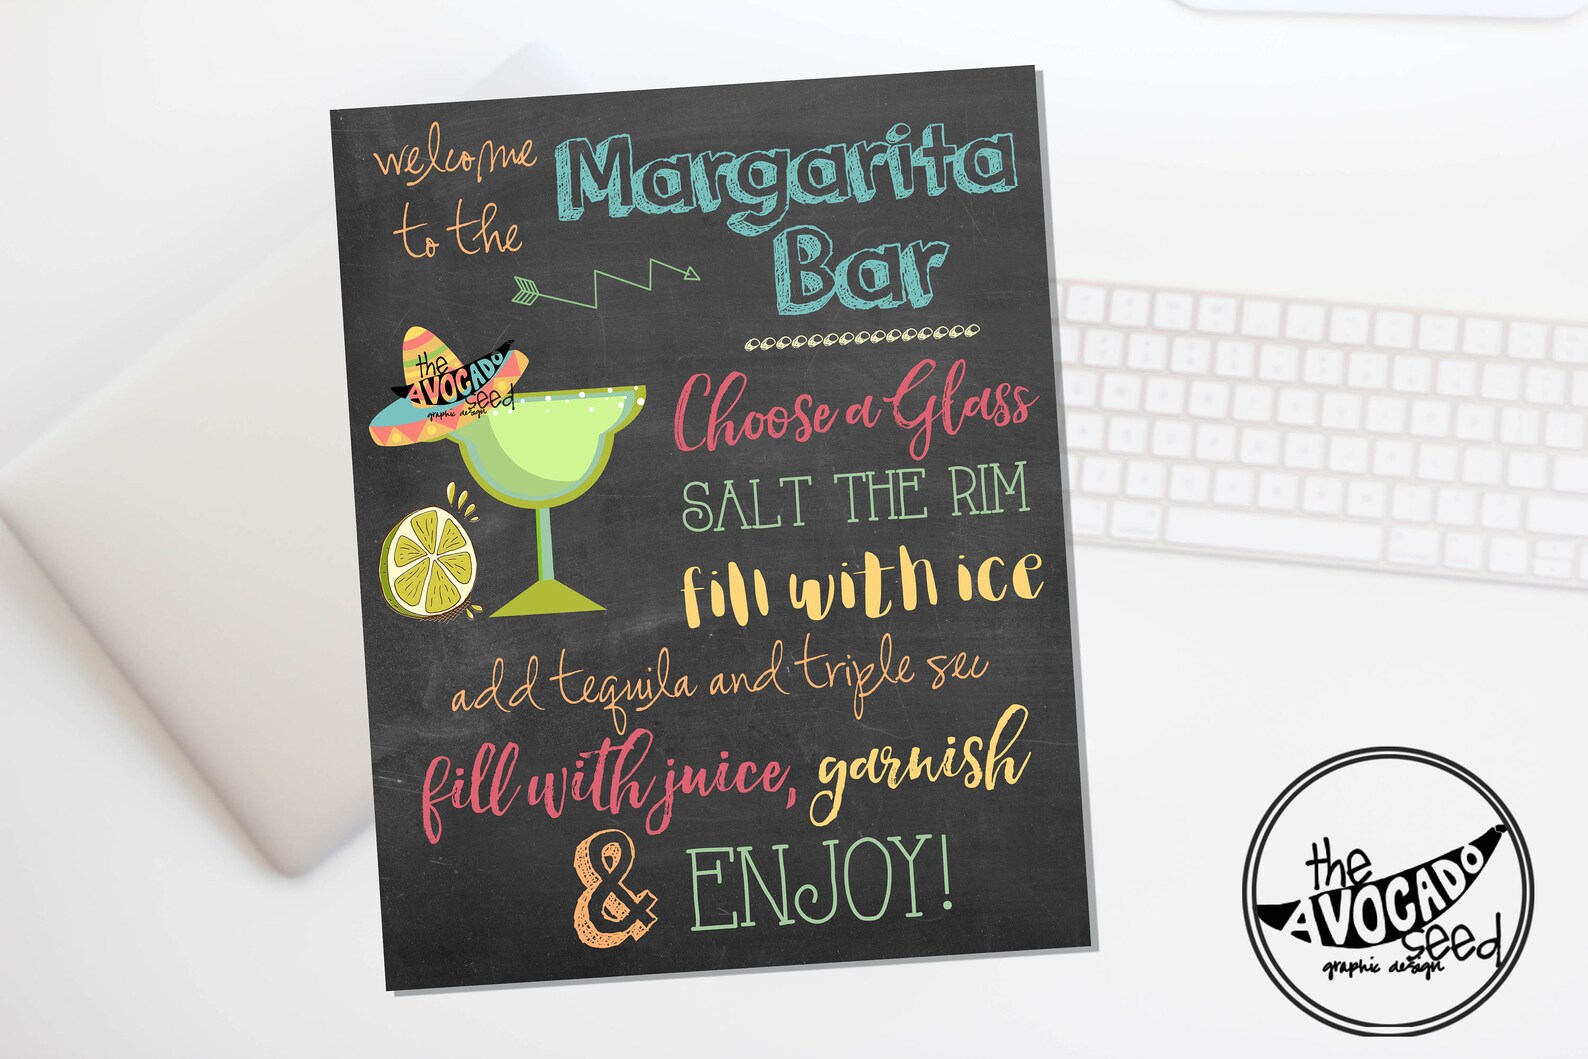 welcome
to the
Margarita
Bar
the
AVOCADO
seed
graphic design
Choose a Glass
SALT THE RIM
fill with ice
add tequila and triple sec
fill with juice, garnish
& ENJOY!
the
AVOCADO
seed
graphic design